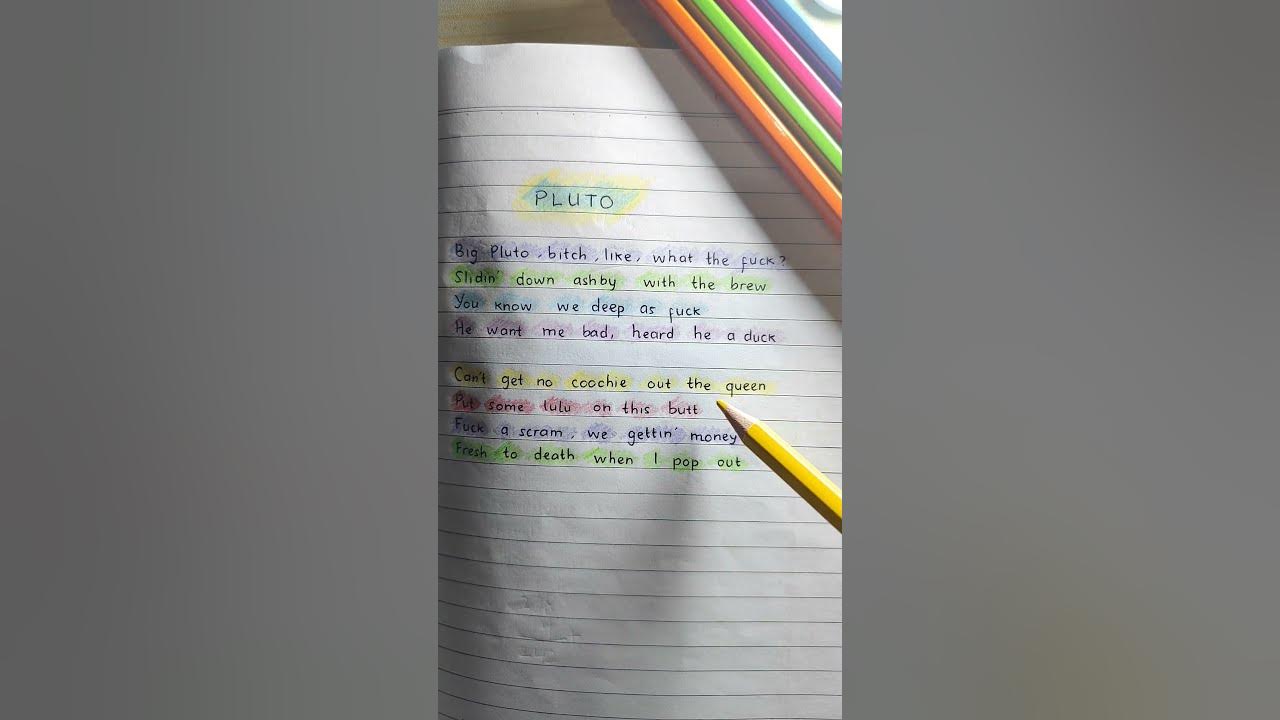 PLUTO
Big Pluto, bitch, like, what the fuck?
Slidin' down ashby with the brew
You know we deep as fuck
He want me bad, heard he a duck
Can't get no coochie out the queen
Put some lulu on this butt
Fuck a scram, we gettin' money
Fresh to death when I pop out